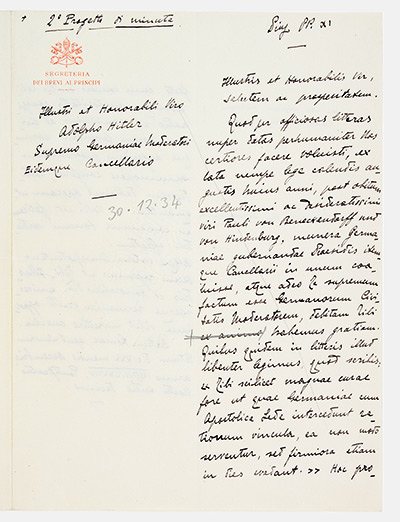 2° Progetto di minuta
SEGRETERIA
DEI BREVI AI PRINCIPI
Illustri et Honorabili Viro
Adolpho Hitler
Supremo Germaniae Moderatori
Eidemque Cancellario
30.12.34
Pius PP. XI
Illustris et Honorabilis Vir,
salutem ac prosperitatem.
Quod per officiosas litteras
nuper datas perhumaniter Nos
certiores facere voluisti, ex
lata nempe lege calendis au
gustis huius anni, post obitum
excellentissimi ac desideratissimi
viri Pauli von Beneckendorff und
von Hindenburg, munera Germa
niae gubernandae Praesidis idem
que Cancellarii in unum coa-
luisse, atque adeo te supremum
factum esse Germanorum Civi
tatis Moderatorem, debitam tibi
ex animo habemus gratiam.
Quibus quidem in litteris illud
libenter legimus, quod scribis:
« Tibi scilicet magnae curae
fore ut quae Germaniae cum
Apostolica Sede intercedunt ra
tionum vincula, ea non modo
serventur, sed firmiora etiam
in dies evadant. » Hoc pro-